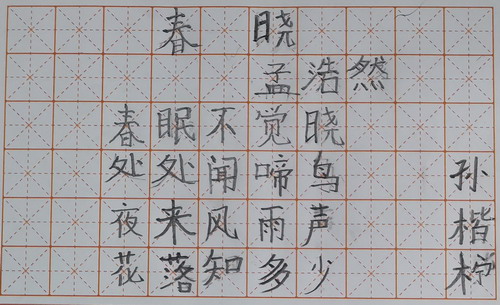 春晓
孟浩然
春眠不觉晓
处处闻啼鸟
夜来风雨声
花落知多少
孙楷